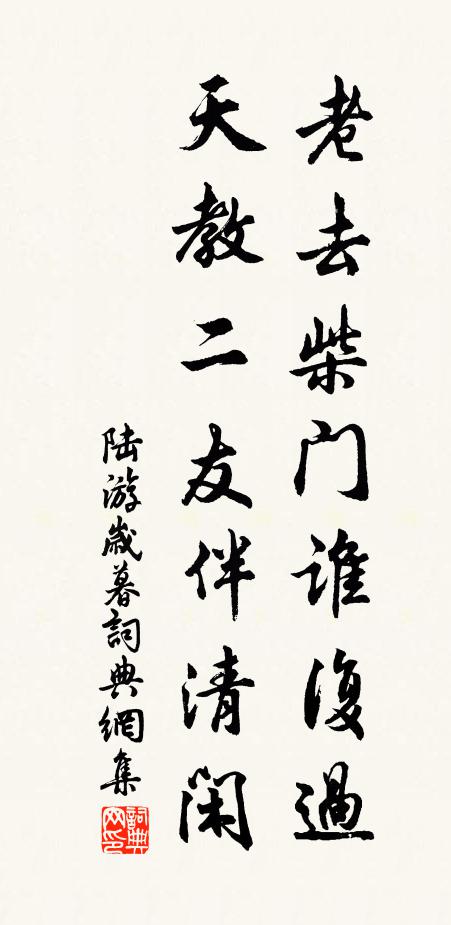 老去柴门谁復過
天教二友伴清閑
陆游歲暮詞典網集
詞典网印